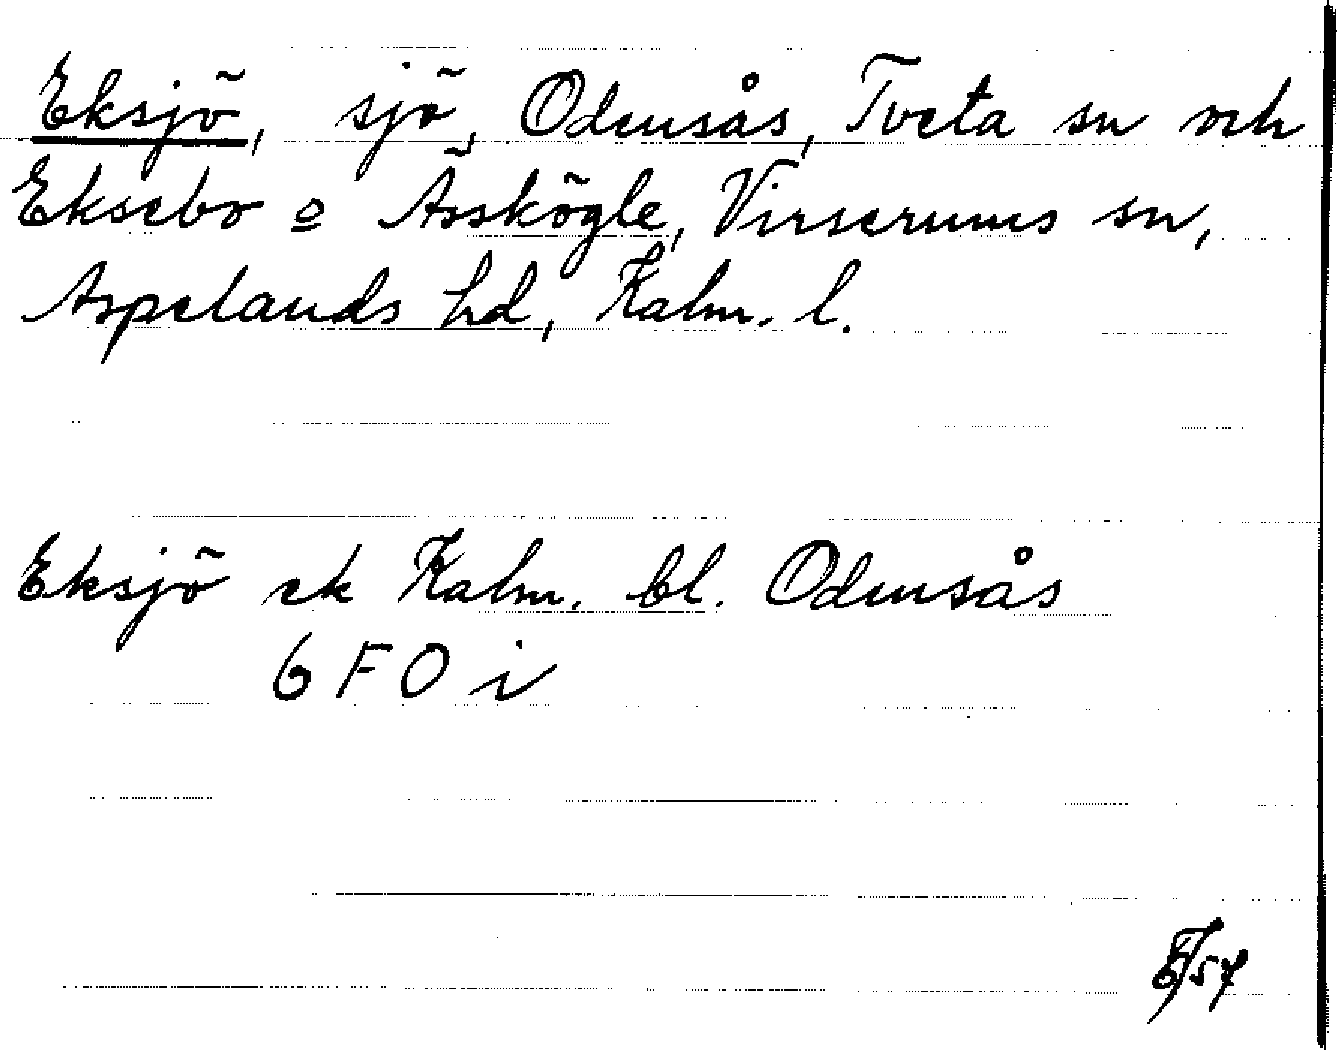 Eksjö, sjö, Odensås, Tveta sn och
Eksebo o Ässkögle, Virserums sn,
Aspelands hd, Kalm. l.
Eksjö ek Kalm. bl. Odensås
6 F O i